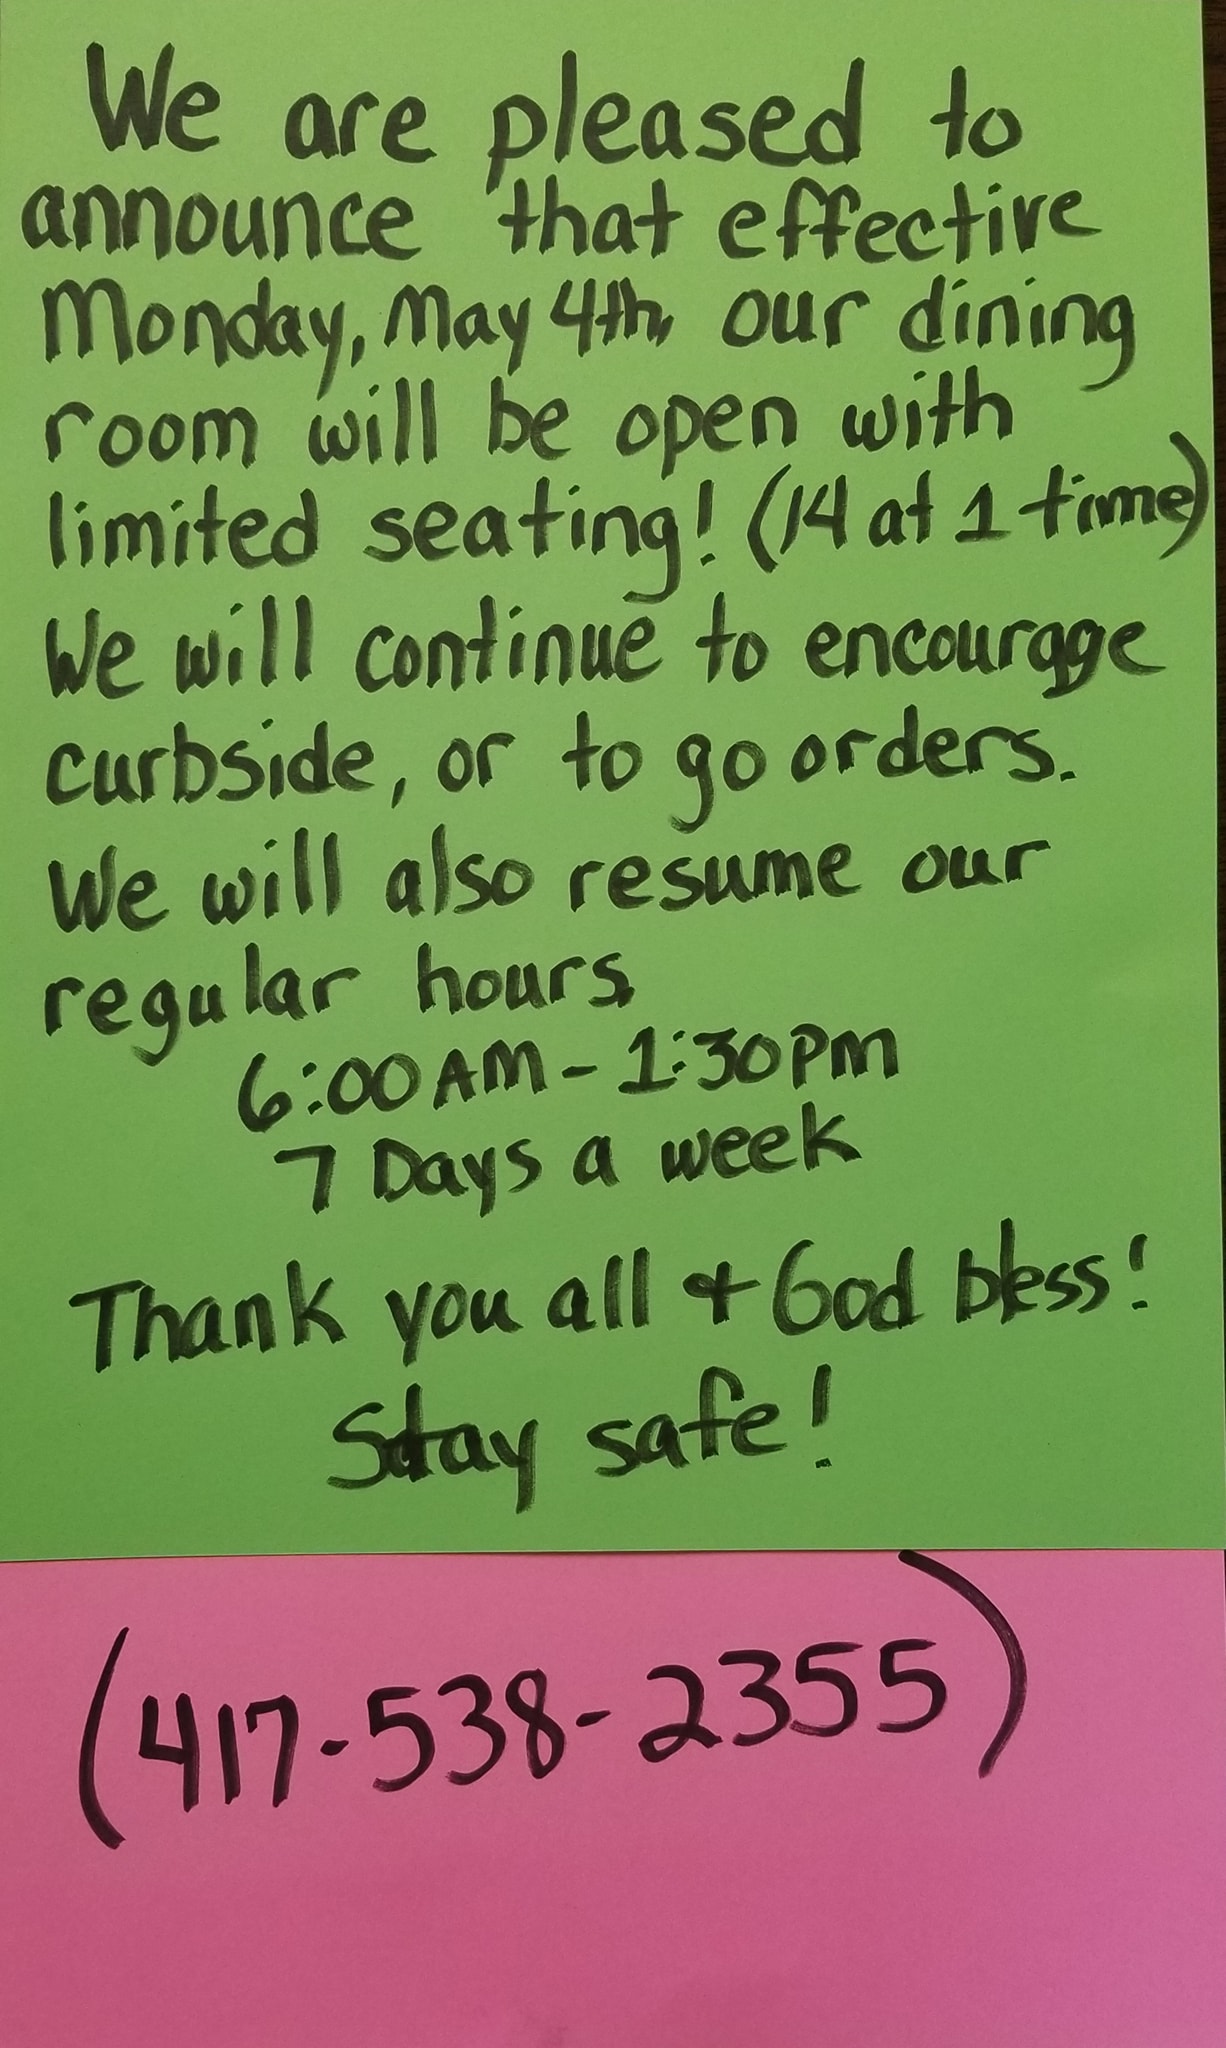 We are pleased to
announce that effective
Monday, May 4th, our dining
room will be open with
limited seating! (14 at 1 time)
We will continue to encourage
curbside, or to go orders.
We will also resume our
regular hours.
6:00AM - 1:30PM
7 Days a week
Thank you all & God bless!
Stay safe!
(417-538-2355)